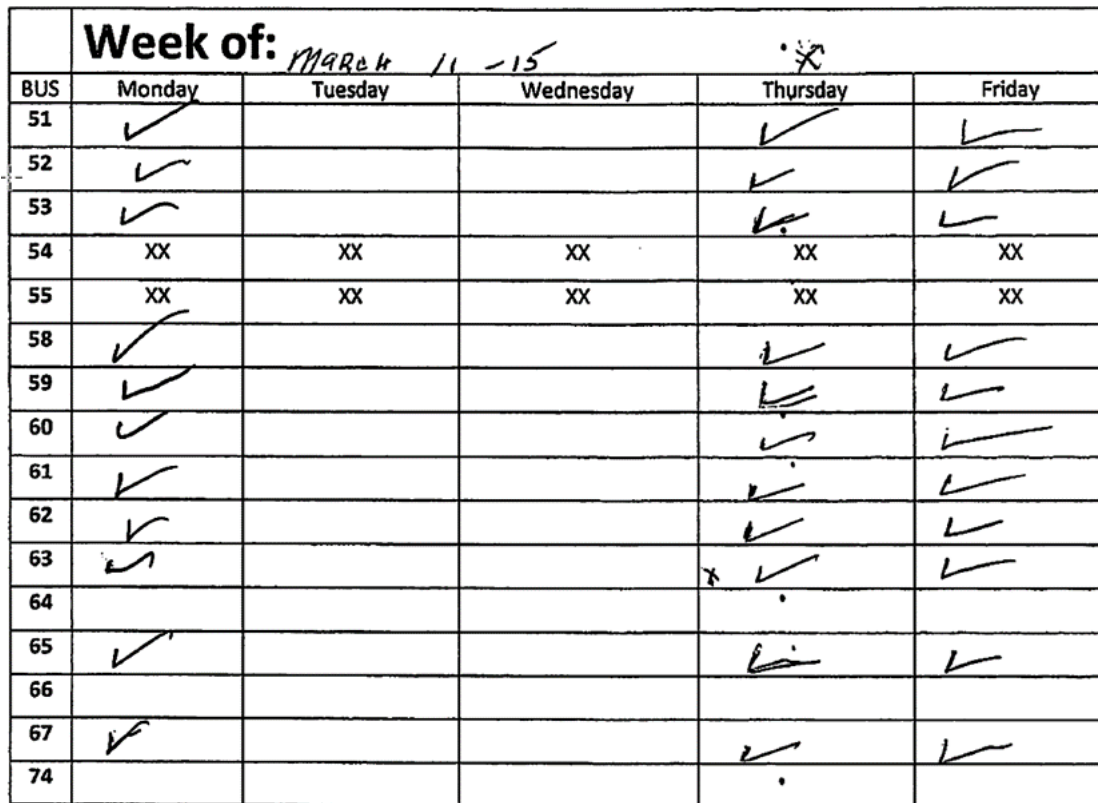 Week of: MARCH 11 - 15 X
BUS Monday Tuesday Wednesday Thursday Friday
51 ✓ ✓ ✓
52 ✓ ✓ ✓
53 ✓ ✓ ✓
54 XX XX XX XX XX
55 XX XX XX XX XX
58 ✓ ✓ ✓
59 ✓ ✓ ✓
60 ✓ ✓ ✓
61 ✓ ✓ ✓
62 ✓ ✓ ✓
63 ✓ x ✓ ✓
64
65 ✓ ✓ ✓
66
67 ✓ ✓ ✓
74